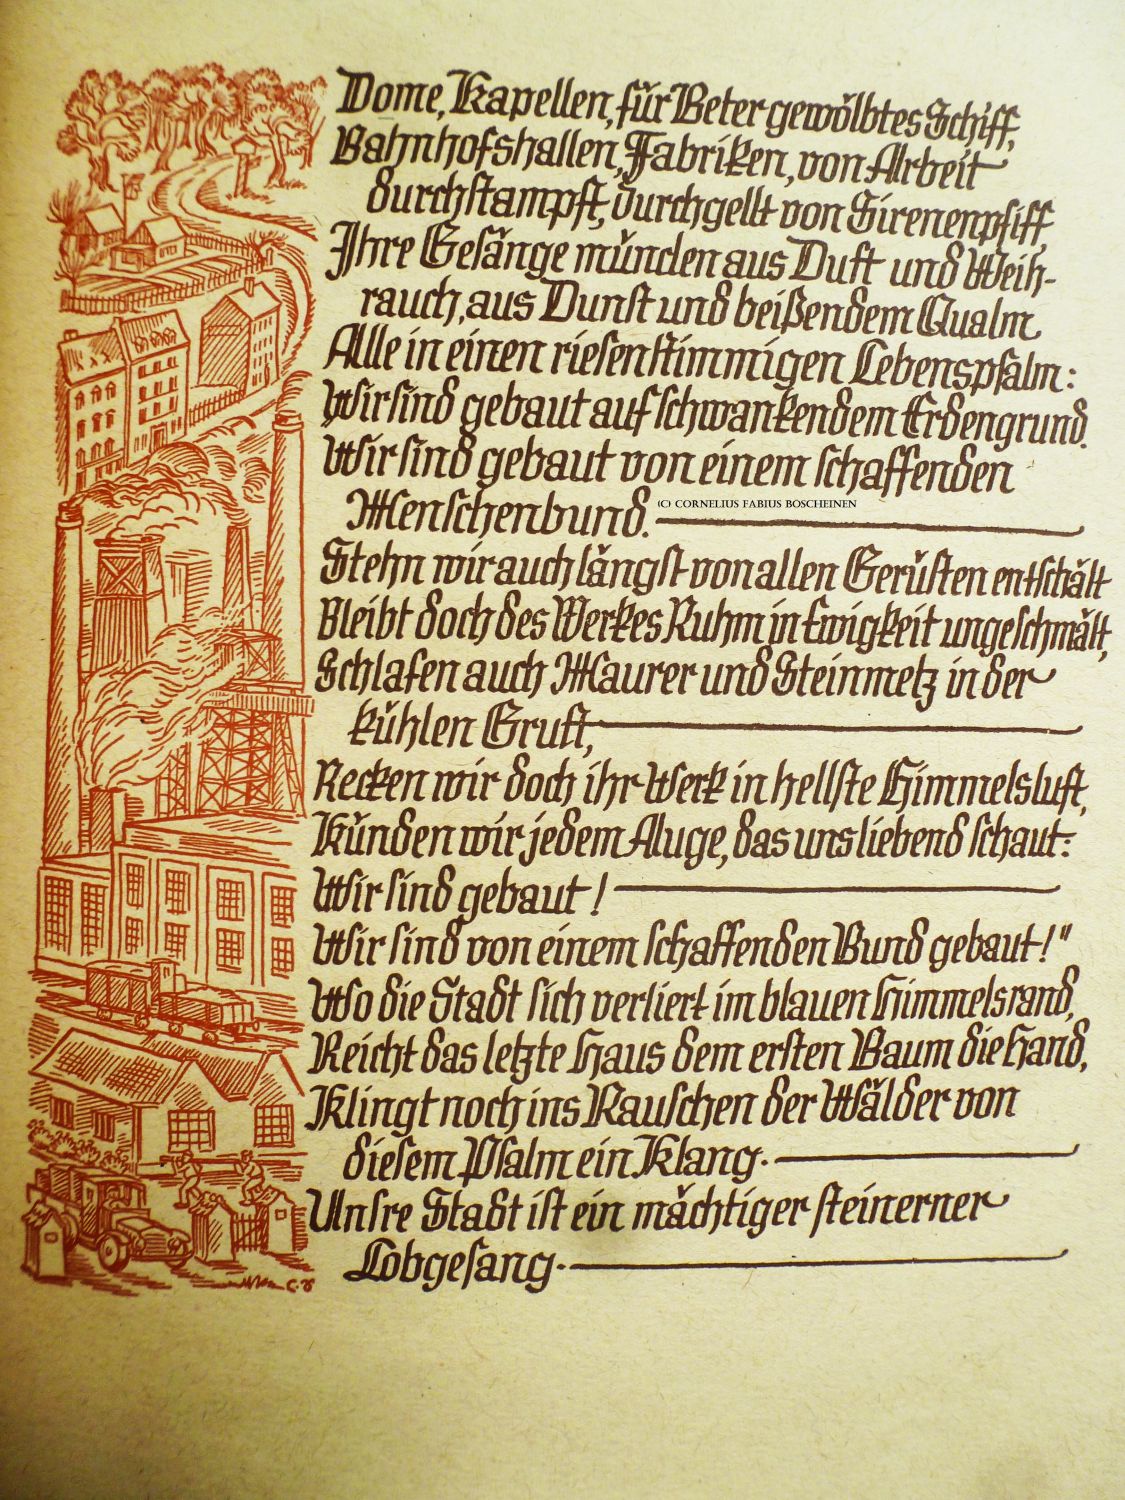 Dome, Kapellen, für Beter gewölbtes Schiff,
Bahnhofshallen, Fabriken, von Arbeit
durchstampft, durchgellt von Sirenenpfiff,
Ihre Gesänge münden aus Duft und Weih-
rauch, aus Dunst und beißendem Qualm
Alle in einen riesenstimmigen Lebenspsalm:
Wir sind gebaut auf schwankendem Erdengrund.
Wir sind gebaut von einem schaffenden
Menschenbund.
(C) CORNELIUS FABIUS BOSCHEINEN
Stehn wir auch längst von allen Gerüsten entschält
Bleibt doch des Werkes Ruhm in Ewigkeit ungeschmält,
Schlafen auch Maurer und Steinmetz in der
kühlen Gruft,
Recken wir doch ihr Werk in hellste Himmelsluft,
Künden wir jedem Auge, das uns liebend schaut:
Wir sind gebaut!
Wir sind von einem schaffenden Bund gebaut!"
Wo die Stadt sich verliert im blauen Himmelsrand,
Reicht das letzte Haus dem ersten Baum die Hand,
Klingt noch ins Rauschen der Wälder von
diesem Psalm ein Klang.
Unsre Stadt ist ein mächtiger steinerner
Lobgesang.